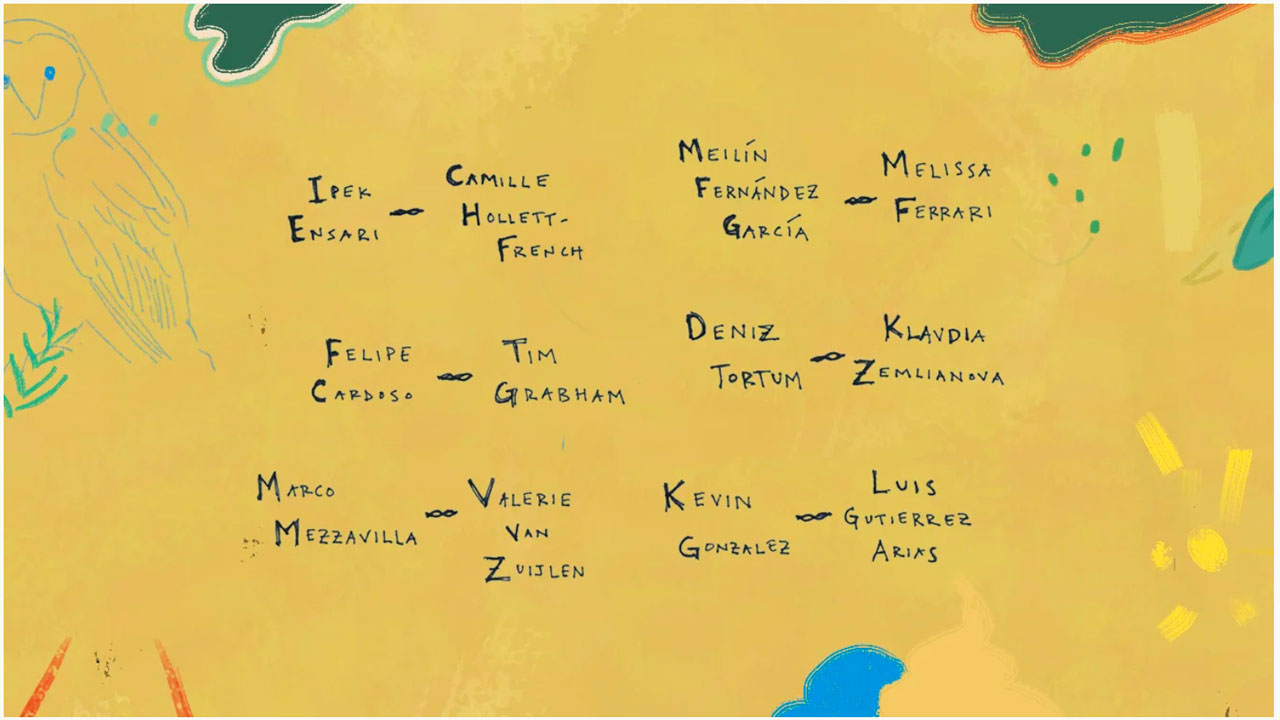 Ipek
Ensari
Camille
Hollett-
French
Meilín
Fernández
García
Melissa
Ferrari
Felipe
Cardoso
Tim
Grabham
Deniz
Tortum
Klavdia
Zemlianova
Marco
Mezzavilla
Valerie
van
Zuijlen
Kevin
Gonzalez
Luis
Gutierrez
Arias